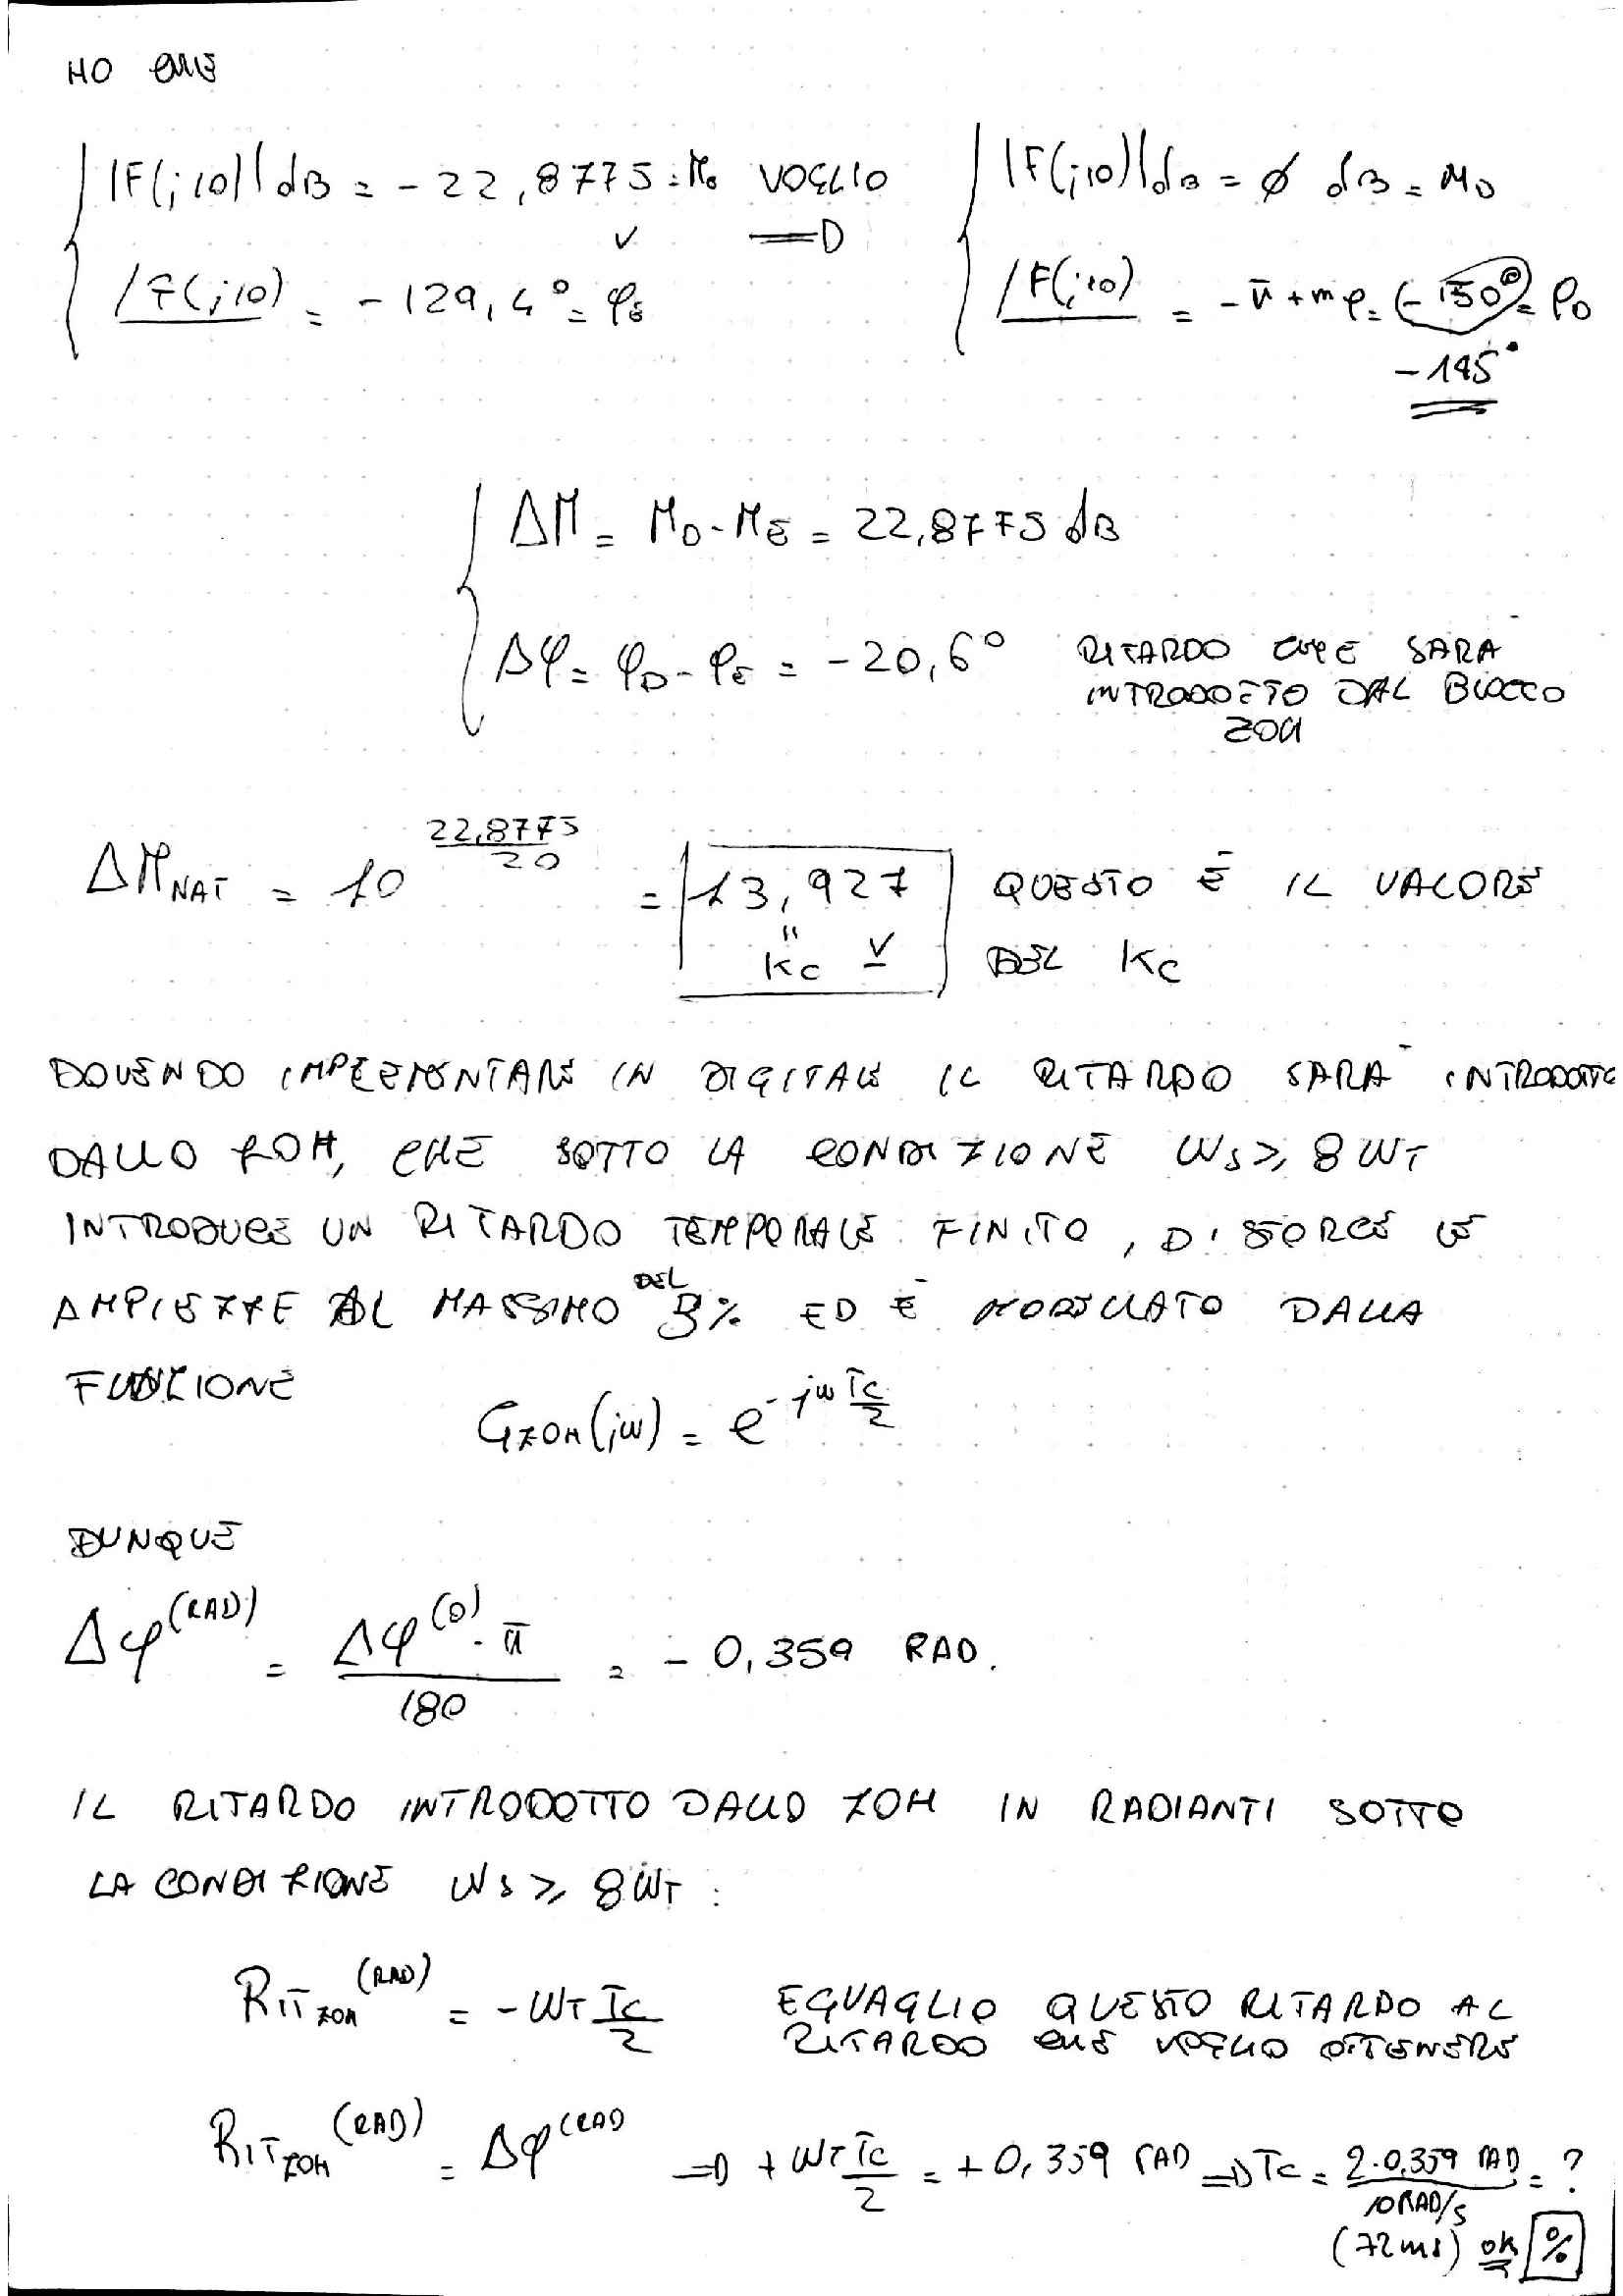 HO CHE
|F(j10)|dB = -22,8775 = ME VOGLIO => |F(j10)|dB = ∅ dB = MD
∠F(j10) = -129,4° = φE ∠F(j10) = -π + mφ = (-150°) = φD
-145°
ΔM = MD - ME = 22,8775 dB
Δφ = φD - φE = -20,6° RITARDO CHE SARÀ
INTRODOTTO DAL BLOCCO
ZOH
ΔM_NAT = 10^(22,8775/20) = 13,927 QUESTO È IL VALORE
" KC V DEL KC
DOVENDO IMPLEMENTARE IN DIGITALE IL RITARDO SARÀ INTRODOTTO
DALLO ZOH, CHE SOTTO LA CONDIZIONE WS ≥ 8 WT
INTRODUCE UN RITARDO TEMPORALE FINITO, DISTORCE LE
AMPIEZZE AL MASSIMO DEL 3% ED È MODELLATO DALLA
FUNZIONE
G_ZOH(jw) = e^(-jw Tc/2)
DUNQUE
Δφ^(RAD) = Δφ^(°) · π / 180 = -0,359 RAD.
IL RITARDO INTRODOTTO DALLO ZOH IN RADIANTI SOTTO
LA CONDIZIONE WS ≥ 8WT:
RIT_ZOH^(RAD) = -WT Tc/2 EGUAGLIO QUESTO RITARDO AL
RITARDO CHE VOGLIO OTTENERE
RIT_ZOH^(RAD) = Δφ^(RAD => + WT Tc/2 = +0,359 RAD => Tc = 2·0,359 RAD / 10 RAD/s = ?
(72ms) ok %